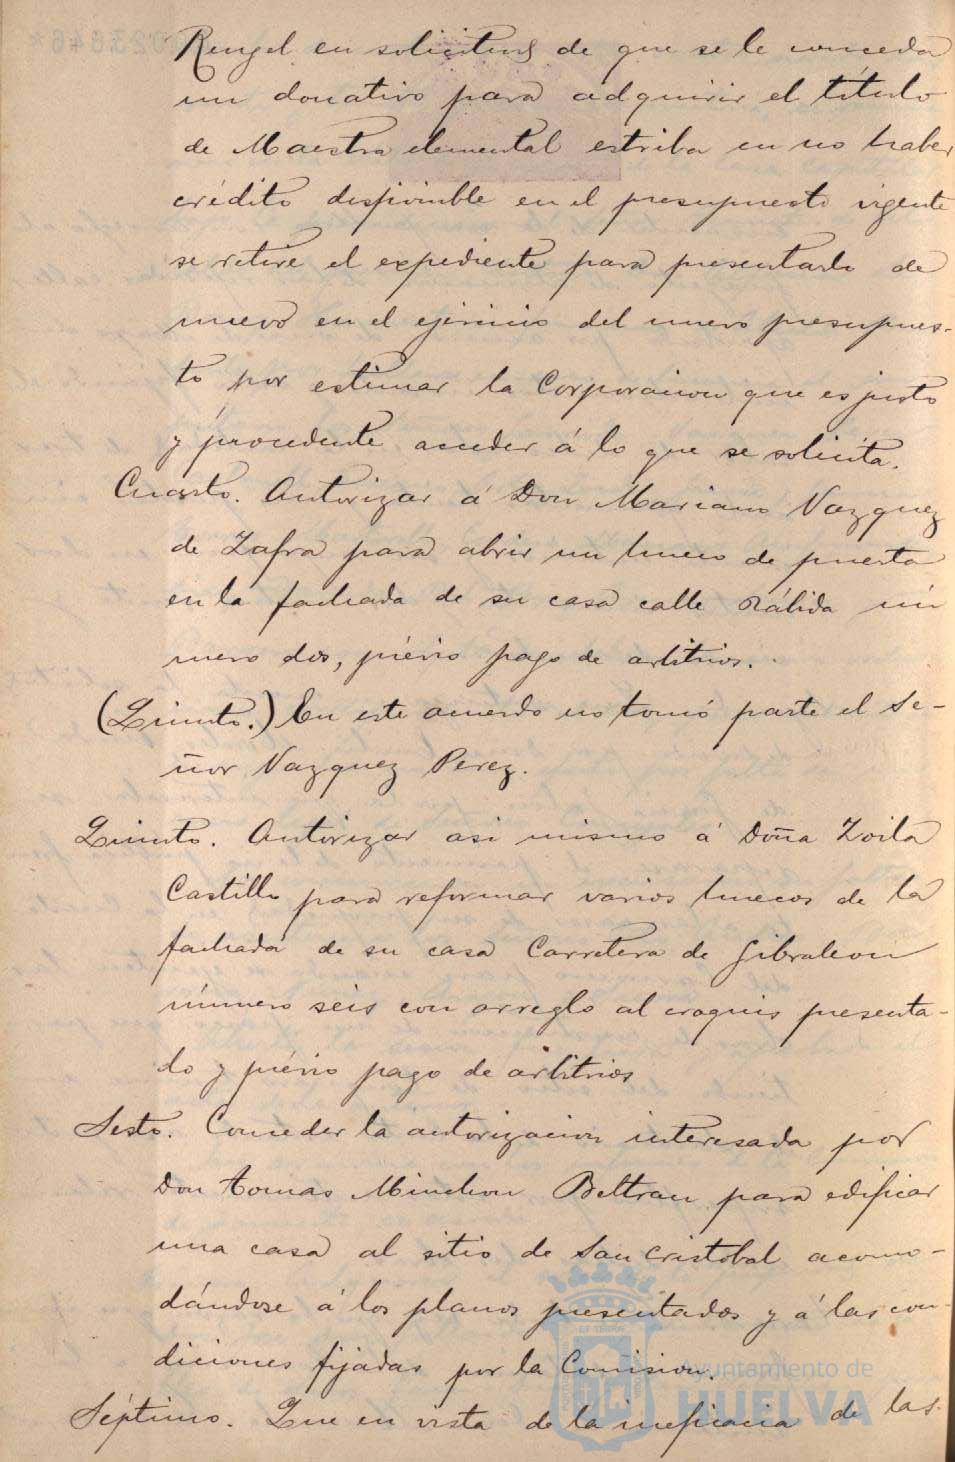 Rengel en solicitud de que se le conceda
un donativo para adquirir el título
de Maestra elemental estriba en no haber
crédito disponible en el presupuesto vigente
se retire el expediente para presentarlo de
nuevo en el ejercicio del nuevo presupues-
to por estimar la Corporacion que es justo
y procedente acceder á lo que se solicita.
Cuarto. Autorizar á Don Mariano Vazquez
de Zafra para abrir un hueco de puerta
en la fachada de su casa calle Rábida nú
mero dos, prévio pago de arbitrios.
(Quinto.) En este acuerdo no tomó parte el Se-
ñor Vazquez Perez.
Quinto. Autorizar asi mismo á Doña Zoila
Castillo para reformar varios huecos de la
fachada de su casa Carretera de Gibraleon
número seis con arreglo al croquis presenta-
do y prévio pago de arbitrios
Sesto. Conceder la autorizacion interesada por
Don Tomas Minchon Beltran para edificar
una casa al sitio de San Cristobal acomo-
dándose á los planos presentados y á las con-
diciones fijadas por la Comision.
Séptimo. Que en vista de la ineficacia de las
Ayuntamiento de
HUELVA